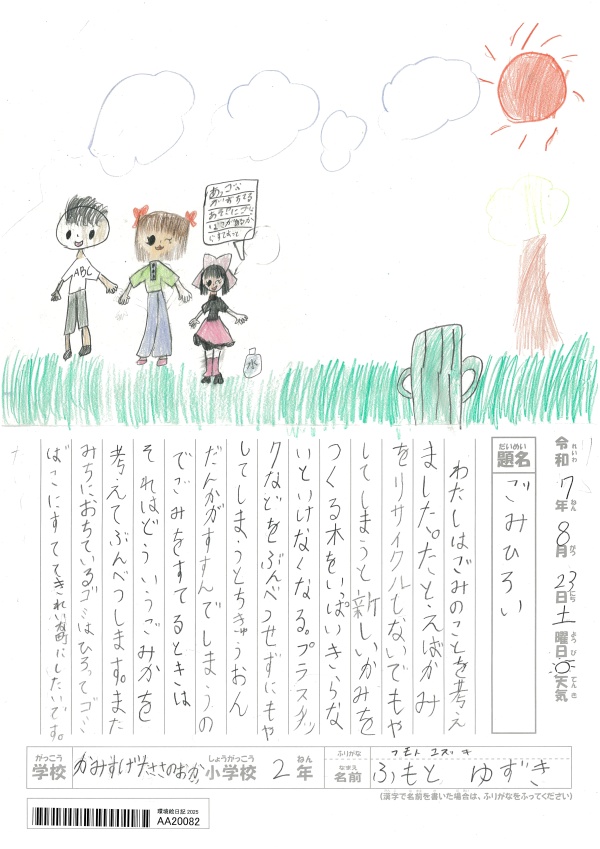 あっゴミ
ABC
水
令和7年8月23日土曜日天気
れいわ ねん がつ にち ようび てんき
だいめい
題名
ごみひろい
わたしはごみのことを考え
ました。たとえばかみ
をリサイクルしないでもや
してしまうと新しいかみを
つくる木をいっぱいきらな
いといけなくなる。プラスチッ
クなどをぶんべつせずにもや
してしまうとちきゅうおん
だんかがすすんでしまうの
でごみをすてるときは
それはどういうごみかを
考えてぶんべつします。また
みちにおちているゴミはひろってゴミ
ばこにすててきれいな町にしたいです。
がっこう しょうがっこう ねん
学校 かみすげたささのおか小学校 2年
ふりがな フモト ユズキ
なまえ
名前 ふもと ゆずき
(漢字で名前を書いた場合は、ふりがなをふってください)
環境絵日記 2025
AA20082